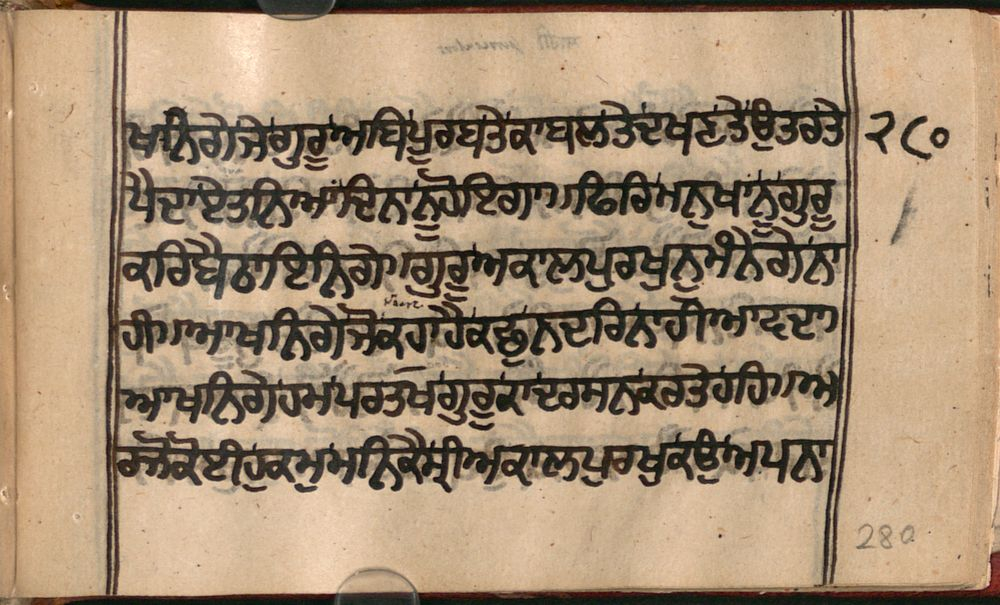 ਖਾਨਿਗੇ ਜੇ ਗੁਰੂ ਅਬਿ ਪੂਰਬ ਤੇ ਕਾਬਲ ਤੇ ਦਖਣ ਤੇ ਉਤਰ ਤੇ ੨੮੦
ਪੈਦਾ ਏਤਨਿਆਂ ਦਿਨਾ ਨੂੰ ਹੋਇਗਾ॥ ਫਿਰਿ ਮਨੁਖਾ ਨੂੰ ਗੁਰੂ
ਕਰਿ ਬੈਠਾਇਨਿਗੇ॥ ਗੁਰੂ ਅਕਾਲ ਪੁਰਖੁ ਨੁ ਮੰਨੇਗੇ ਨਾ
ਹੀ॥ ਆਖਨਿਗੇ ਜੋ ਕਹਾ ਹੈ ਕਛੁ ਨਦਰਿ ਨਾਹੀ ਆਵਦਾ
ਆਖਨਿਗੇ ਹਮ ਪਰਤਖ ਗੁਰੂ ਕਾ ਦਰਸਨ ਕਰਤੇ ਹਹਿ॥ ਅ
ਰ ਜੋ ਕੋਈ ਹੁਕਮੁ ਮਨਿ ਕੈ ਸ੍ਰੀ ਅਕਾਲ ਪੁਰਖੁ ਕਉ ਅਪਨਾ
280